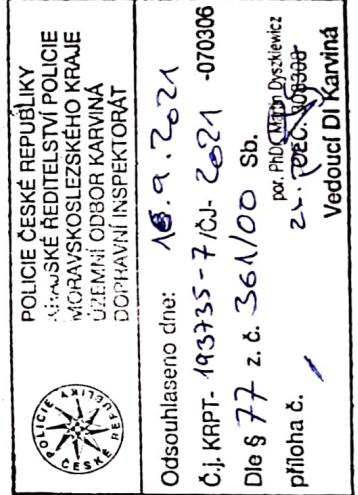 POLICIE ČESKÉ REPUBLIKY
KRAJSKÉ ŘEDITELSTVÍ POLICIE
MORAVSKOSLEZSKÉHO KRAJE
ÚZEMNÍ ODBOR KARVINÁ
DOPRAVNÍ INSPEKTORÁT
POLICIE ČESKÉ REPUBLIKY
Odsouhlaseno dne: 16.9.2021
Č.j. KRPT- 193735-7/ČJ- 2021 -070306
Dle § 77 z. č. 361/00 Sb.
por. PhDr. Martin Dyszkiewicz
příloha č.
Vedoucí DI Karviná